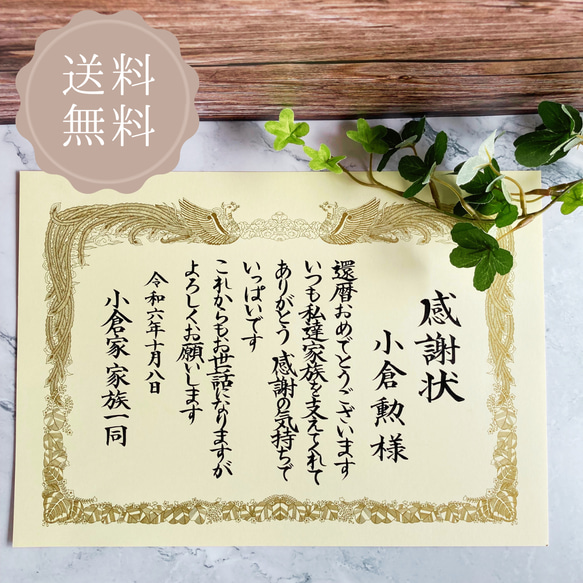 送料
無料
感謝状
小倉勲様
還暦おめでとうございます
いつも私達家族を支えてくれて
ありがとう 感謝の気持ちで
いっぱいです
これからもお世話になりますが
よろしくお願いします
令和六年十月八日
小倉家 家族一同